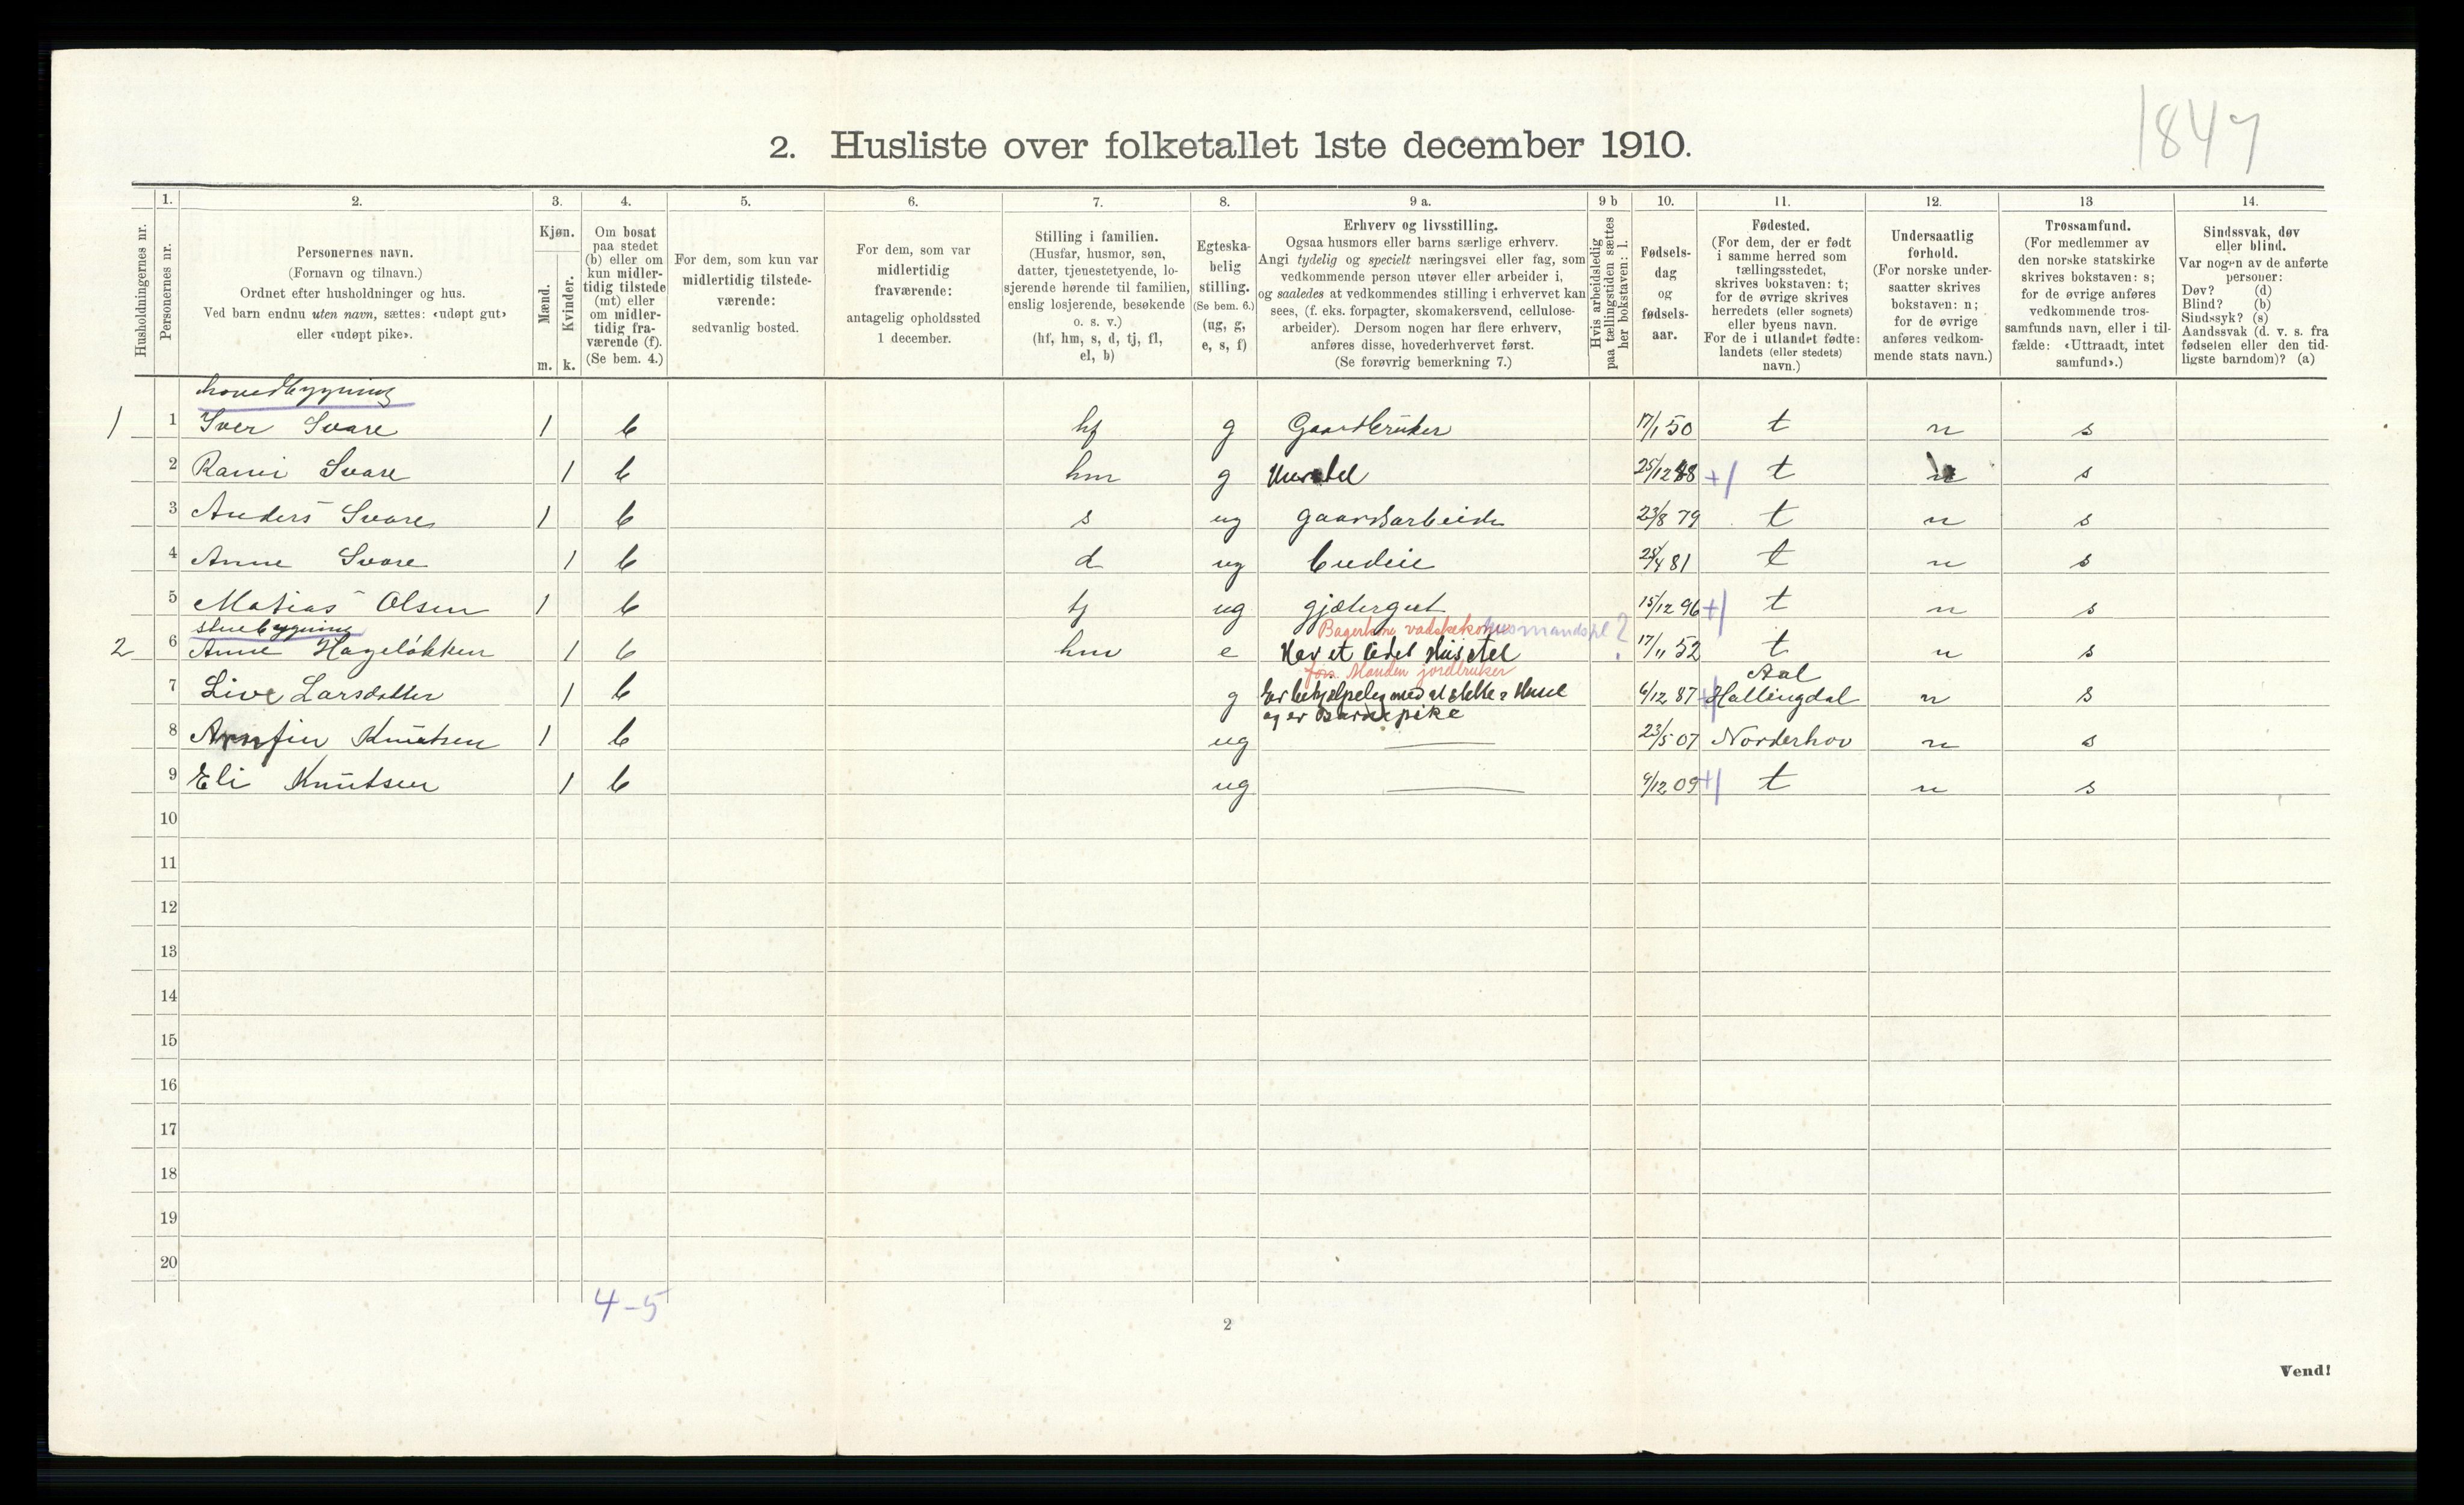 1847
2. Husliste over folketallet 1ste december 1910.
Husholdningernes nr.
1. Personernes nr.
2. Personernes navn. (Fornavn og tilnavn.) Ordnet efter husholdninger og hus. Ved barn endnu uten navn, sættes: «udøpt gut» eller «udøpt pike».
3. Kjøn. Mænd. Kvinder. m. k.
4. Om bosat paa stedet (b) eller om kun midler-tidig tilstede (mt) eller om midler-tidig fra-værende (f). (Se bem. 4.)
5. For dem, som kun var midlertidig tilstede-værende: sedvanlig bosted.
6. For dem, som var midlertidig fraværende: antagelig opholdssted 1 december.
7. Stilling i familien. (Husfar, husmor, søn, datter, tjenestetyende, lo-sjerende hørende til familien, enslig losjerende, besøkende o. s. v.) (hf, hm, s, d, tj, fl, el, b)
8. Egteska-belig stilling. (Se bem. 6.) (ug, g, e, s, f)
9 a. Erhverv og livsstilling. Ogsaa husmors eller barns særlige erhverv. Angi tydelig og specielt næringsvei eller fag, som vedkommende person utøver eller arbeider i, og saaledes at vedkommendes stilling i erhvervet kan sees, (f. eks. forpagter, skomakersvend, cellulose-arbeider). Dersom nogen har flere erhverv, anføres disse, hovederhvervet først. (Se forøvrig bemerkning 7.)
9 b Hvis arbeidsledig paa tællingstiden sættes her bokstaven: l.
10. Fødsels-dag og fødsels-aar.
11. Fødested. (For dem, der er født i samme herred som tællingsstedet, skrives bokstaven: t; for de øvrige skrives herredets (eller sognets) eller byens navn. For de i utlandet fødte: landets (eller stedets) navn.)
12. Undersaatlig forhold. (For norske under-saatter skrives bokstaven: n; for de øvrige anføres vedkom-mende stats navn.)
13 Trossamfund. (For medlemmer av den norske statskirke skrives bokstaven: s; for de øvrige anføres vedkommende tros-samfunds navn, eller i til-fælde: «Uttraadt, intet samfund».)
14. Sindssvak, døv eller blind. Var nogen av de anførte personer: Døv? (d) Blind? (b) Sindssyk? (s) Aandssvak (d. v. s. fra fødselen eller den tid-ligste barndom)? (a)
hovedbygning
1 1 Iver Svare 1 b hf g Gaardbruker 17/1 50 t n s
2 Svare 1 b hm g 25/12 48 +1 t n s
3 Anders Svare 1 b s ug gaardsarbeider 23/8 79 t n s
4 Anne Svare 1 b d ug budeie 81 t n s
5 Matias Olsen 1 b tj ug gjætergut 15/12 96 +1 t n s
stuebygning Bagerkone vadskekone husmandspl ?
2 6 Anne Hageløkken 1 b hm e Har et Husstel 17/11 52 t n s
førr. Manden jordbruker Aal
7 Live Larsdatter 1 b g Er behjelpelig med at stelle i Huset 6/12 87 Hallingdal n s
og er Barnepike
8 Arnfin Knutsen 1 b ug 23/5 07 Norderhov n s
9 Eli Knutsen 1 b ug 9/12 09 +1 t n s
10
11
12
13
14
15
16
17
18
19
20
4-5
2
Vend!